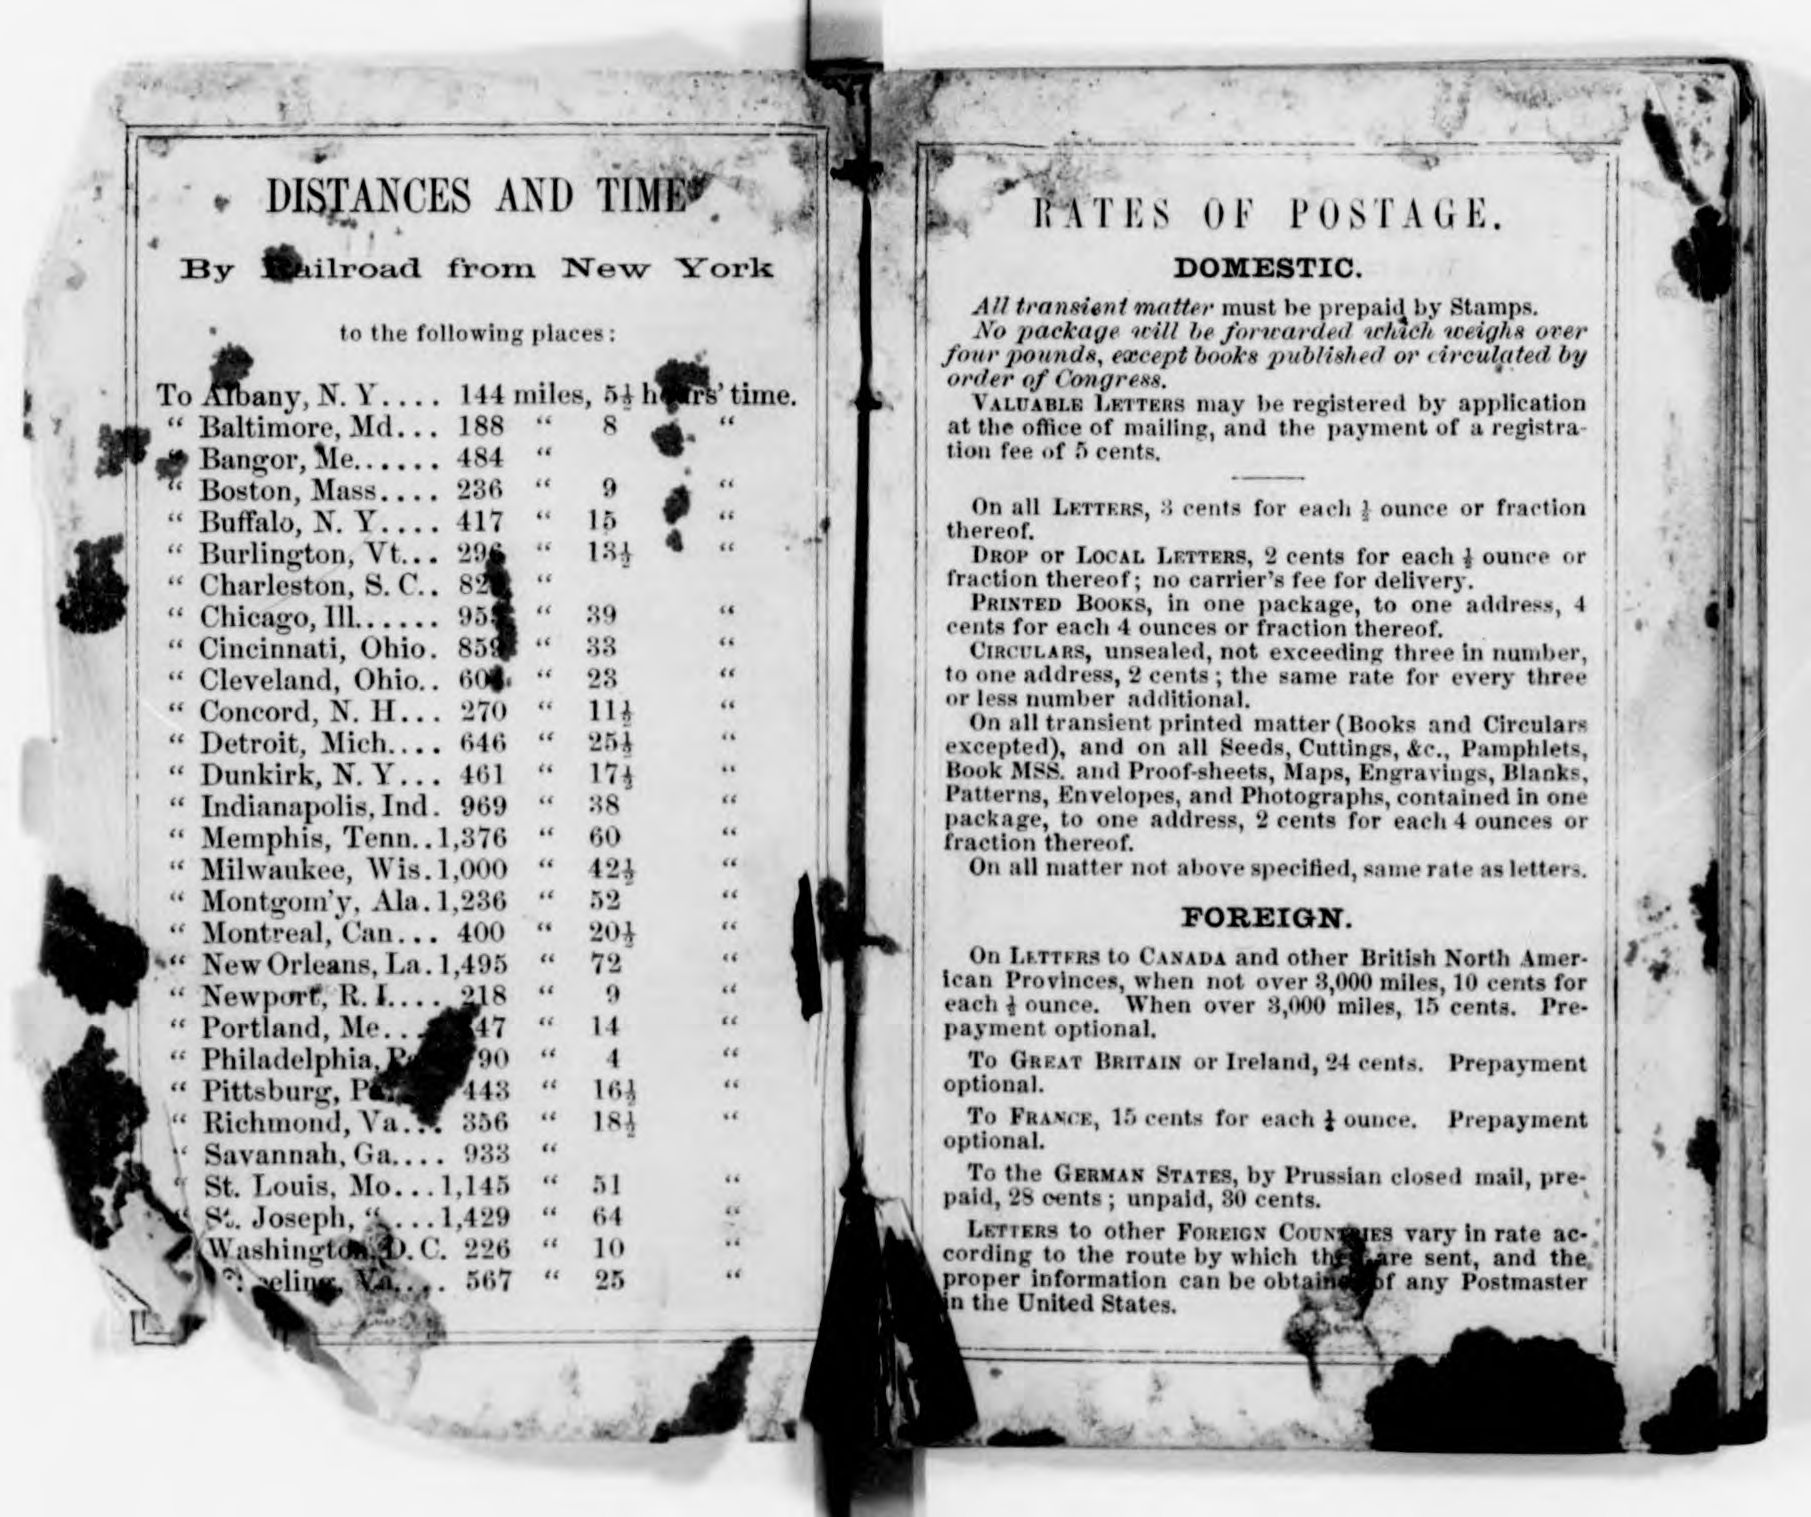 DISTANCES AND TIME
By Railroad from New York
to the following places:
To Albany, N. Y.... 144 miles, 5½ hours' time.
“ Baltimore, Md... 188 “ 8 “
“ Bangor, Me...... 484 “
“ Boston, Mass.... 236 “ 9 “
“ Buffalo, N. Y.... 417 “ 15 “
“ Burlington, Vt... 296 “ 13½ “
“ Charleston, S. C.. “
“ Chicago, Ill...... “ 39 “
“ Cincinnati, Ohio. 859 “ 33 “
“ Cleveland, Ohio.. “ 23 “
“ Concord, N. H... 270 “ 11½ “
“ Detroit, Mich.... 646 “ 25½ “
“ Dunkirk, N. Y... 461 “ 17½ “
“ Indianapolis, Ind. 969 “ 38 “
“ Memphis, Tenn..1,376 “ 60 “
“ Milwaukee, Wis.1,000 “ 42½ “
“ Montgom'y, Ala.1,236 “ 52 “
“ Montreal, Can... 400 “ 20½ “
“ New Orleans, La.1,495 “ 72 “
“ Newport, R. I.... 218 “ 9 “
“ Portland, Me.. “ 14 “
“ Philadelphia, 90 “ 4 “
“ Pittsburg, 443 “ 16½ “
“ Richmond, Va... 356 “ 18½ “
“ Savannah, Ga.... 933 “
“ St. Louis, Mo...1,145 “ 51 “
“ St. Joseph, “ ...1,429 “ 64 “
Washington, D. C. 226 “ 10 “
Va.... 567 “ 25 “
RATES OF POSTAGE.
DOMESTIC.
All transient matter must be prepaid by Stamps.
No package will be forwarded which weighs over
four pounds, except books published or circulated by
order of Congress.
VALUABLE LETTERS may be registered by application
at the office of mailing, and the payment of a registra-
tion fee of 5 cents.
On all LETTERS, 3 cents for each ½ ounce or fraction
thereof.
DROP or LOCAL LETTERS, 2 cents for each ½ ounce or
fraction thereof; no carrier's fee for delivery.
PRINTED BOOKS, in one package, to one address, 4
cents for each 4 ounces or fraction thereof.
CIRCULARS, unsealed, not exceeding three in number,
to one address, 2 cents; the same rate for every three
or less number additional.
On all transient printed matter (Books and Circulars
excepted), and on all Seeds, Cuttings, &c., Pamphlets,
Book MSS. and Proof-sheets, Maps, Engravings, Blanks,
Patterns, Envelopes, and Photographs, contained in one
package, to one address, 2 cents for each 4 ounces or
fraction thereof.
On all matter not above specified, same rate as letters.
FOREIGN.
On LETTERS to CANADA and other British North Amer-
ican Provinces, when not over 3,000 miles, 10 cents for
each ½ ounce. When over 3,000 miles, 15 cents. Pre-
payment optional.
To GREAT BRITAIN or Ireland, 24 cents. Prepayment
optional.
To FRANCE, 15 cents for each ¼ ounce. Prepayment
optional.
To the GERMAN STATES, by Prussian closed mail, pre-
paid, 28 cents; unpaid, 30 cents.
LETTERS to other FOREIGN COUNTRIES vary in rate ac-
cording to the route by which they are sent, and the
proper information can be obtained of any Postmaster
in the United States.